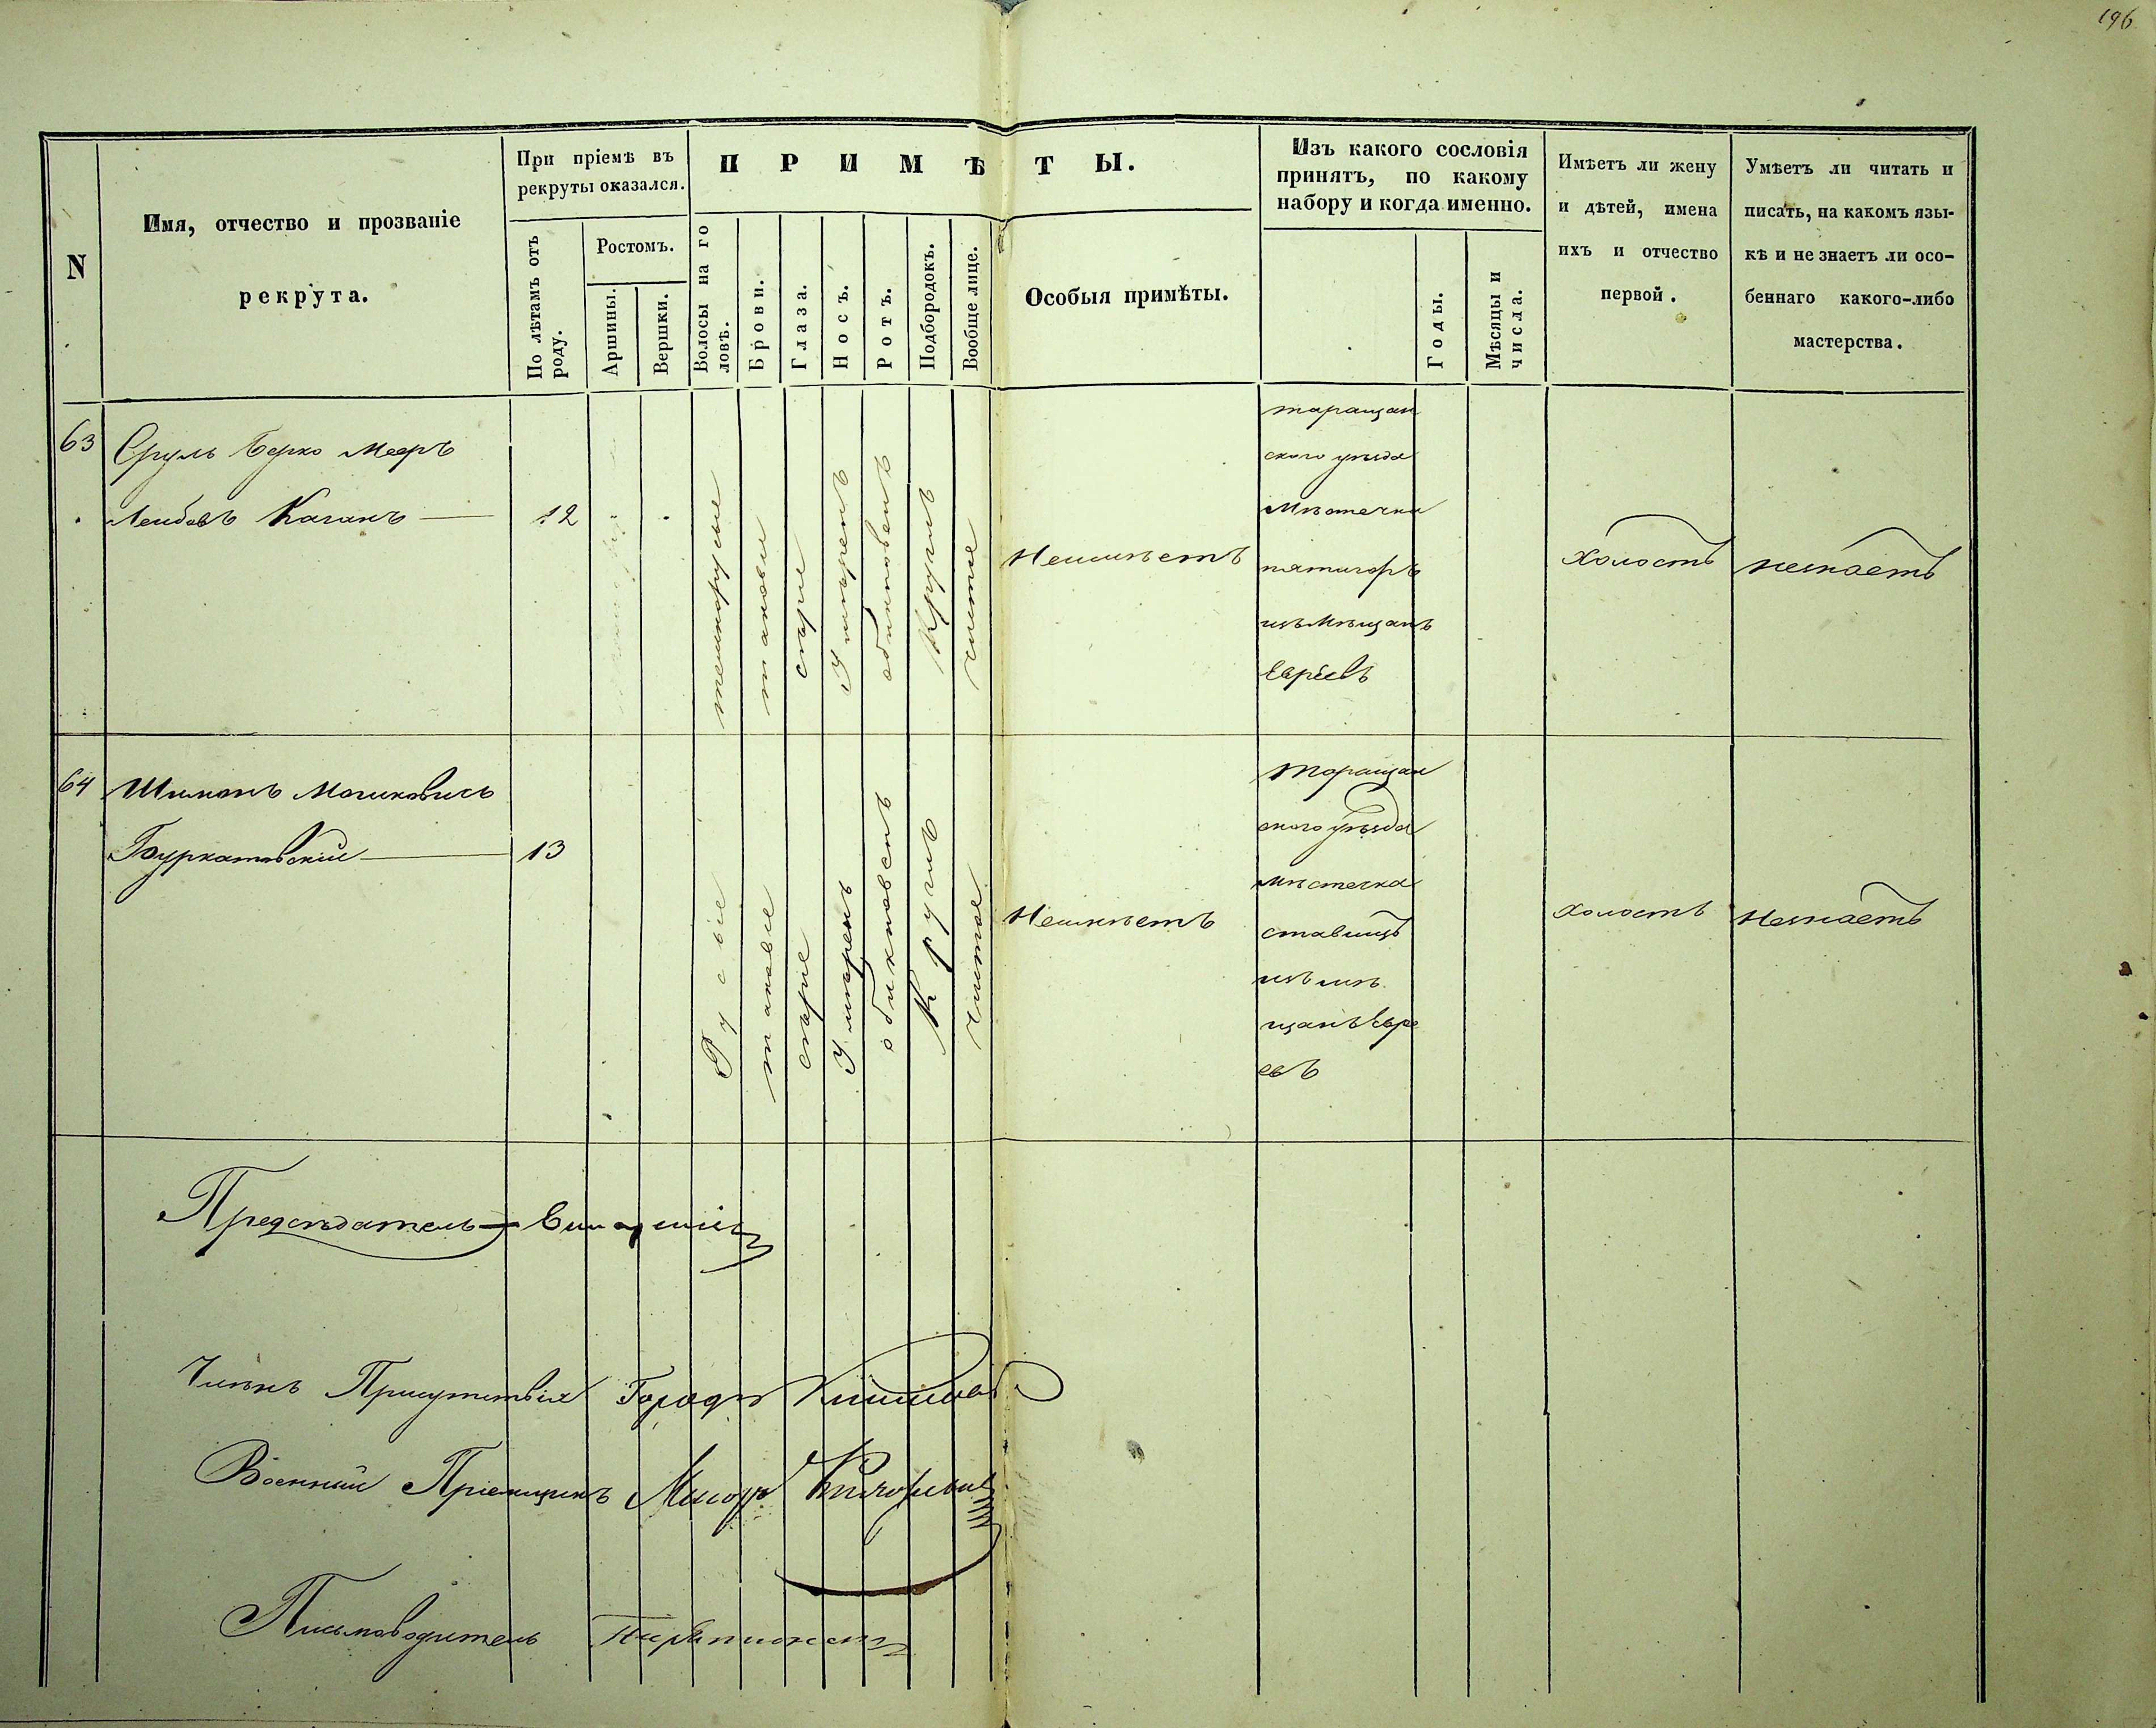 196
N
Имя, отчество и прозваніе
рекрута.
При пріемѣ въ
рекруты оказался.
По лѣтамъ отъ
роду.
Ростомъ.
Аршины.
Вершки.
П Р И М Ѣ Т Ы.
Волосы на го
ловѣ.
Брови.
Глаза.
Носъ.
Ротъ.
Подбородокъ.
Вообще лице.
Особыя примѣты.
Изъ какого сословія
принятъ, по какому
набору и когда именно.
Годы.
Мѣсяцы и
числа.
Имѣетъ ли жену
и дѣтей, имена
ихъ и отчество
первой.
Умѣетъ ли читать и
писать, на какомъ язы-
кѣ и не знаетъ ли осо-
беннаго какого-либо
мастерства.
63
Сруль Берко Мееръ
Лейбовъ Каганъ
12
темнорусые
таковы
сѣрые
Умѣренъ
обикновенъ
Круглъ
чистое
Неимѣетъ
таращан
ского уѣзда
Мѣстечка
пятигоръ
изъ Мѣщанъ
Евреевъ
холостъ
незнаетъ
64
Шимонъ Мошковичъ
13
Русые
таковые
сѣрые
Умѣренъ
Круглъ
Чистое
Неимѣетъ
Таращан
ского уѣзда
мѣстечка
ставищъ
изъ мѣ
щанъ Евре
евъ
холостъ
Незнаетъ
Предсѣдатель
Членъ Присутствія
Военный Пріемщикъ Маіоръ
Письмоводитель